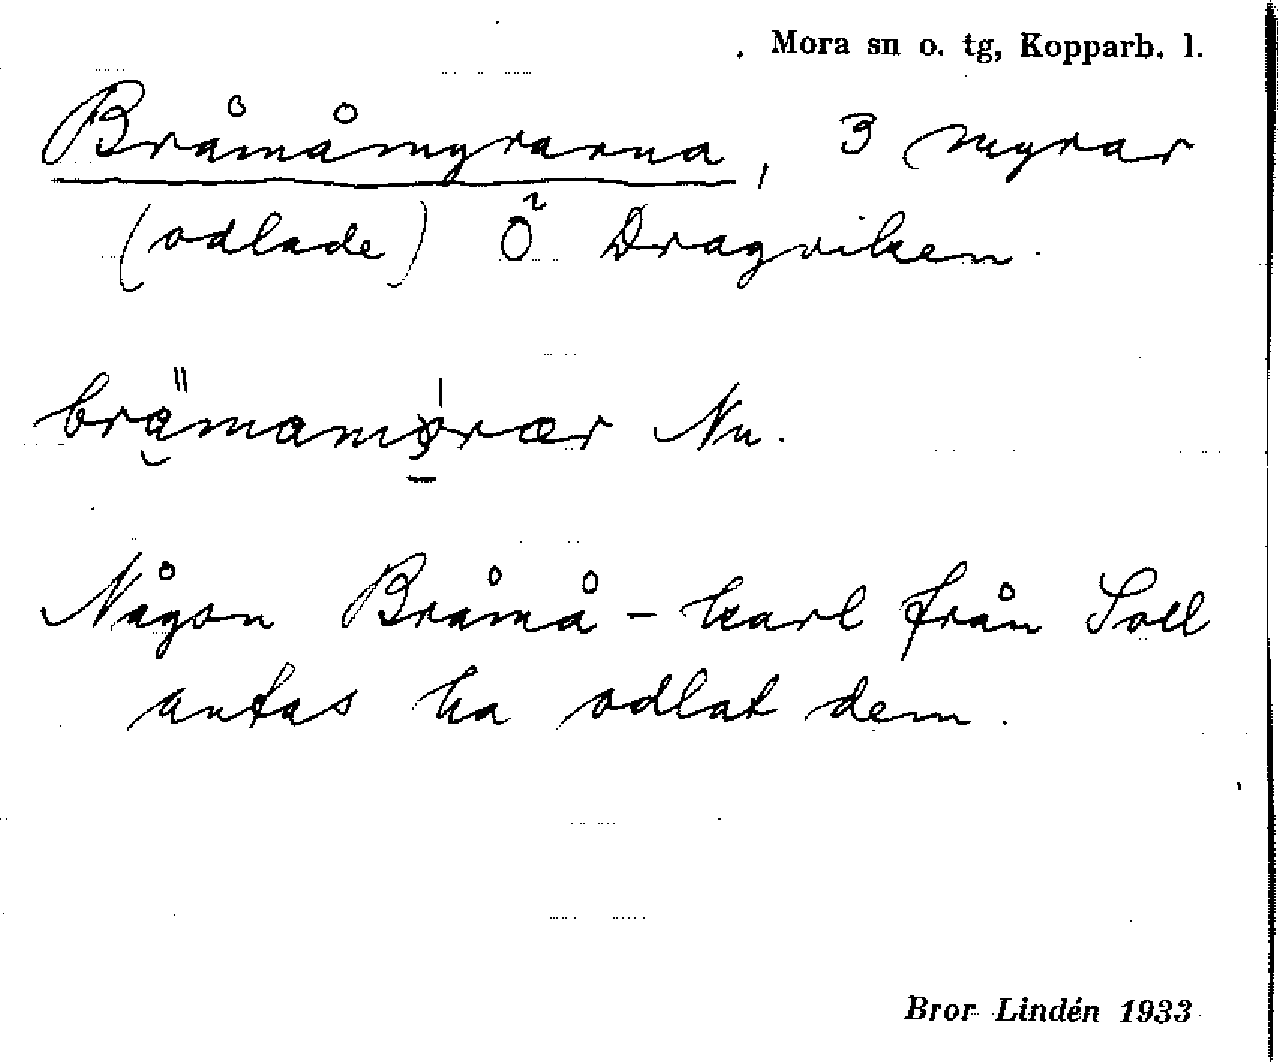 Mora sn o. tg, Kopparb. l.
Bråmåmyrarna, 3 myrar
(odlade) Ö Dragviken.
Nu.
Någon Bråmå-karl från Soll
antas ha odlat dem.
Bror Lindén 1933